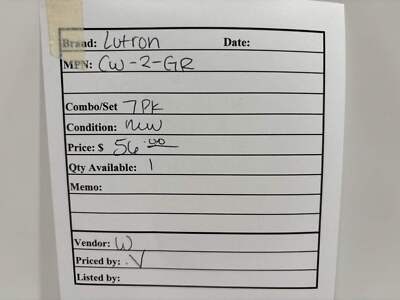 Brand: Lutron Date:
MPN: CW-2-GR
Combo/Set 7PK
Condition: new
Price: $ 56.00
Qty Available: 1
Memo:
Vendor: W
Priced by: V
Listed by: